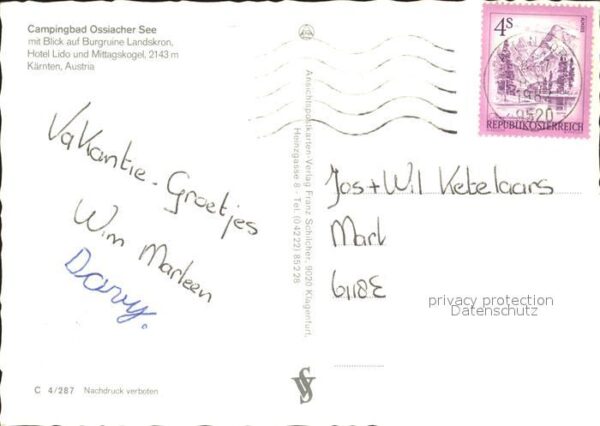 Campingbad Ossiacher See
mit Blick auf Burgruine Landskron,
Hotel Lido und Mittagskogel, 2143 m
Kärnten, Austria
Vakantie-Groetjes
Wim Marleen
Davy.
C 4/287 Nachdruck verboten
Ansichtspostkarten-Verlag Franz Schilcher, 9020 Klagenfurt,
Heinzgasse 8 - Tel. (04222) 85228
4S
9520
REPUBLIK ÖSTERREICH
Jos + Wil Ketelaars
Mart
6118E
privacy protection
Datenschutz